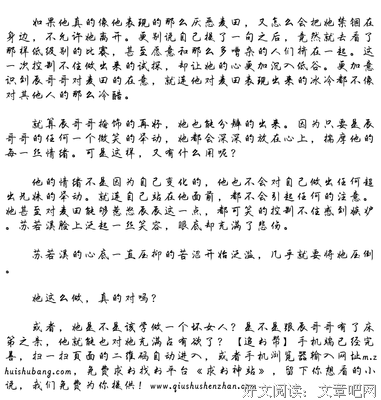 如果他真的像他表现的那么厌恶麦田，又怎么会把她禁锢在
身边，不允许她离开。更别说自己提了一句之后，竟然就去看了
那样低级别的比赛，甚至愿意和那么多嘈杂的人们挤在一起。这
一次控制不住做出来的试探，却让她的心更加沉入低谷。更加意
识到辰哥哥对麦田的在意，就连他对麦田表现出来的冰冷都不像
对其他人的那么冷酷。
就算辰哥哥掩饰的再好，她也能分辨的出来。因为只要是辰
哥哥的任何一个微笑的举动，她都会深深的放在心上，揣摩他的
每一丝情绪。可是这样，又有什么用呢？
他的情绪不是因为自己变化的，他也不会对自己做出任何超
出兄妹的举动。就连自己站在他面前，都不会引起任何的注意。
她甚至对麦田能够惹怒辰辰这一点，都可笑的控制不住感到嫉妒
。苏若漠脸上泛起一丝笑容，眼底却充满了悲伤。
苏若漠的心底一直压抑的苦涩开始泛滥，几乎就要将她压倒
。
她这么做，真的对吗？
或者，她是不是该学做一个坏女人？是不是跟辰哥哥有了床
第之亲，他就能也对她充满占有欲了？【追书帮】手机端已经完
善，扫一扫页面的二维码自动进入，或者手机浏览器输入网址m.z
huishubang.com，免费求书找书平台《求书神站》，留下你想看的小
说，我们免费为你提供！www.qiushushenzhan.com
好文阅读：文章吧网